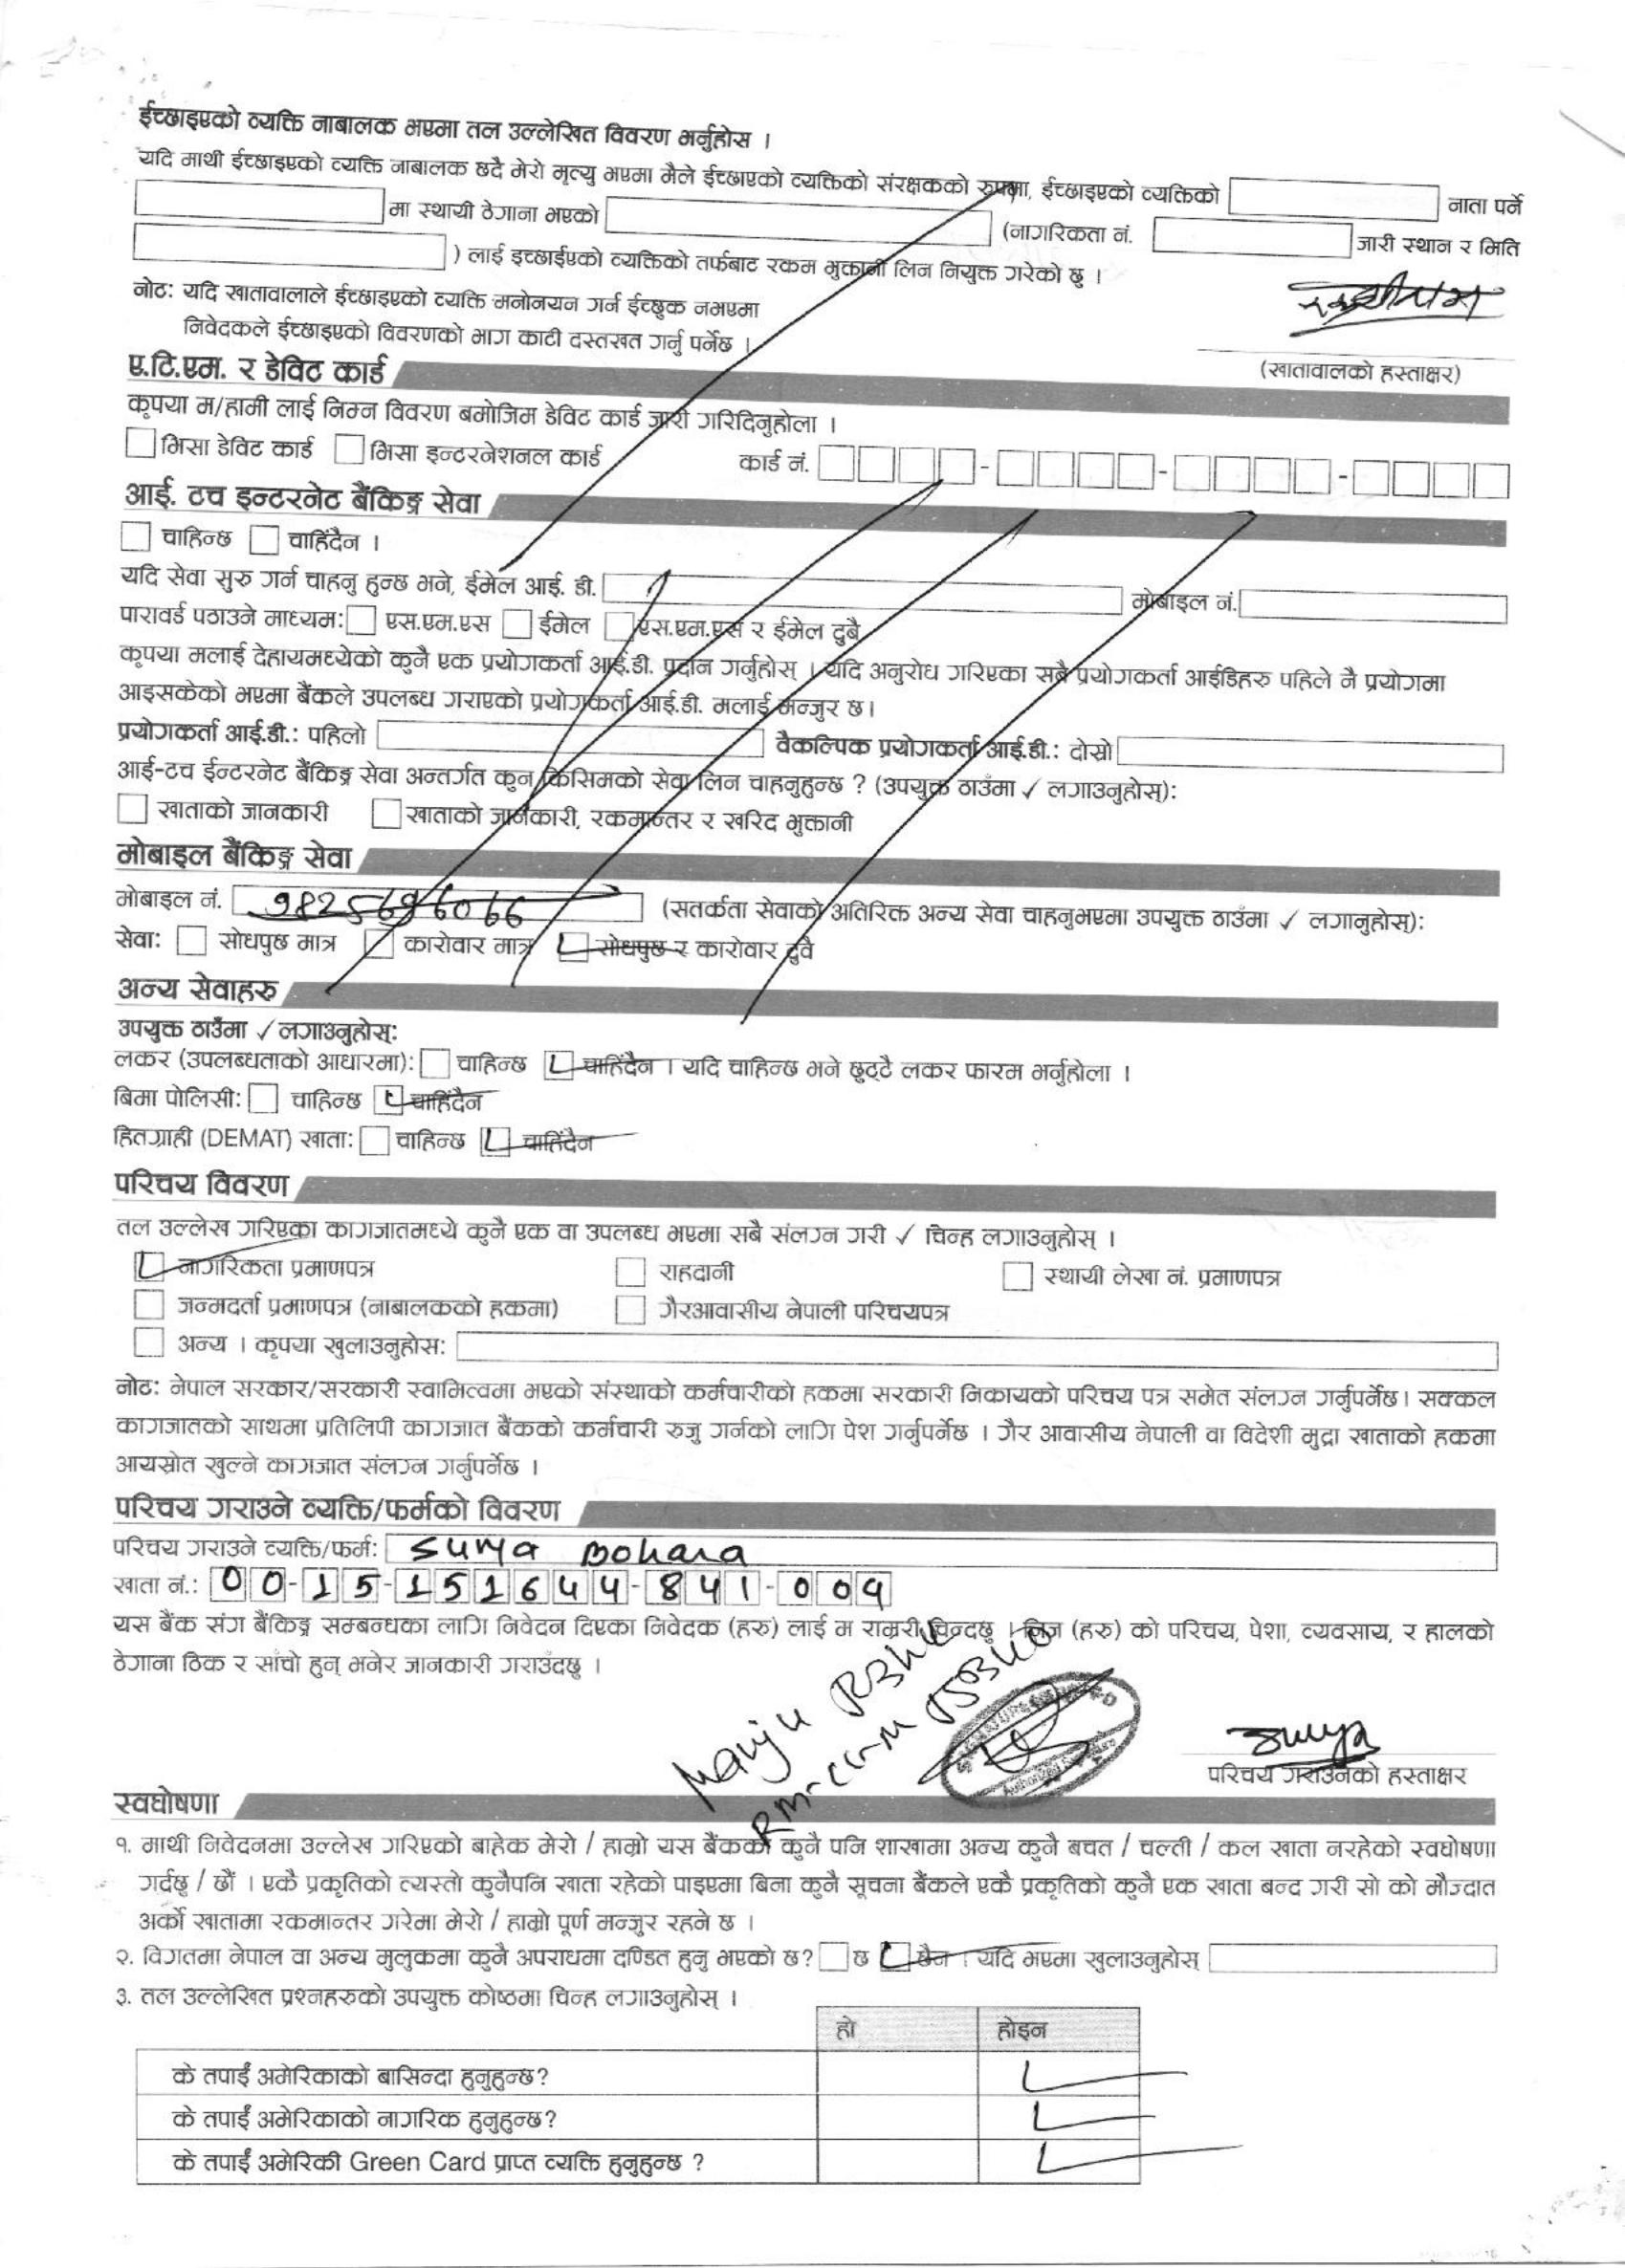 ईच्छाइएको व्यक्ति नाबालक भएमा तल उल्लेखित विवरण भर्नुहोस ।
यदि माथी ईच्छाइएको व्यक्ति नाबालक छदै मेरो मृत्यु भएमा मैले ईच्छाएको व्यक्तिको संरक्षकको रुपमा, ईच्छाइएको व्यक्तिको नाता पर्ने
मा स्थायी ठेगाना भएको (नागरिकता नं. जारी स्थान र मिति
) लाई इच्छाईएको व्यक्तिको तर्फबाट रकम भुक्तानी लिन नियुक्त गरेको छु ।
नोट: यदि खातावालाले ईच्छाइएको व्यक्ति मनोनयन गर्न ईच्छुक नभएमा
निवेदकले ईच्छाइएको विवरणको भाग काटी दस्तखत गर्नु पर्नेछ ।
(खातावालको हस्ताक्षर)
ए.टि.एम. र डेविट कार्ड
कृपया म/हामी लाई निम्न विवरण बमोजिम डेविट कार्ड जारी गरिदिनुहोला ।
भिसा डेविट कार्ड भिसा इन्टरनेशनल कार्ड कार्ड नं. - - -
आई. टच इन्टरनेट बैंकिङ्ग सेवा
चाहिन्छ चाहिंदैन ।
यदि सेवा सुरु गर्न चाहनु हुन्छ भने, ईमेल आई. डी. मोबाइल नं.
पासवर्ड पठाउने माध्यम: एस.एम.एस ईमेल एस.एम.एस र ईमेल दुबै
कृपया मलाई देहायमध्येको कुनै एक प्रयोगकर्ता आई.डी. प्रदान गर्नुहोस् । यदि अनुरोध गरिएका सबै प्रयोगकर्ता आईडिहरु पहिले नै प्रयोगमा
आइसकेको भएमा बैंकले उपलब्ध गराएको प्रयोगकर्ता आई.डी. मलाई मन्जुर छ।
प्रयोगकर्ता आई.डी.: पहिलो वैकल्पिक प्रयोगकर्ता आई.डी.: दोस्रो
आई-टच ईन्टरनेट बैंकिङ्ग सेवा अन्तर्गत कुन किसिमको सेवा लिन चाहनुहुन्छ ? (उपयुक्त ठाउँमा ✓ लगाउनुहोस्):
खाताको जानकारी खाताको जानकारी, रकमान्तर र खरिद भुक्तानी
मोबाइल बैंकिङ्ग सेवा
मोबाइल नं. 9825696066 (सतर्कता सेवाको अतिरिक्त अन्य सेवा चाहनुभएमा उपयुक्त ठाउँमा ✓ लगानुहोस्):
सेवा: सोधपुछ मात्र कारोवार मात्र सोधपुछ र कारोवार दुवै
अन्य सेवाहरु
उपयुक्त ठाउँमा ✓ लगाउनुहोस्:
लकर (उपलब्धताको आधारमा): चाहिन्छ चाहिंदैन । यदि चाहिन्छ भने छुट्टै लकर फारम भर्नुहोला ।
बिमा पोलिसी: चाहिन्छ चाहिंदैन
हितग्राही (DEMAT) खाता: चाहिन्छ चाहिंदैन
परिचय विवरण
तल उल्लेख गरिएका कागजातमध्ये कुनै एक वा उपलब्ध भएमा सबै संलग्न गरी ✓ चिन्ह लगाउनुहोस् ।
नागरिकता प्रमाणपत्र राहदानी स्थायी लेखा नं. प्रमाणपत्र
जन्मदर्ता प्रमाणपत्र (नाबालकको हकमा) गैरआवासीय नेपाली परिचयपत्र
अन्य । कृपया खुलाउनुहोस:
नोट: नेपाल सरकार/सरकारी स्वामित्वमा भएको संस्थाको कर्मचारीको हकमा सरकारी निकायको परिचय पत्र समेत संलग्न गर्नुपर्नेछ। सक्कल
कागजातको साथमा प्रतिलिपी कागजात बैंकको कर्मचारी रुजु गर्नको लागि पेश गर्नुपर्नेछ । गैर आवासीय नेपाली वा विदेशी मुद्रा खाताको हकमा
आयस्रोत खुल्ने कागजात संलग्न गर्नुपर्नेछ ।
परिचय गराउने व्यक्ति/फर्मको विवरण
परिचय गराउने व्यक्ति/फर्म: Surya Bohara
खाता नं.: 00-15-151644-841-009
यस बैंक संग बैंकिङ्ग सम्बन्धका लागि निवेदन दिएका निवेदक (हरु) लाई म राम्ररी चिन्दछु । निज (हरु) को परिचय, पेशा, व्यवसाय, र हालको
ठेगाना ठिक र साँचो हुन् भनेर जानकारी गराउँदछु ।
Manju
Surya
परिचय गराउनेको हस्ताक्षर
स्वघोषणा
१. माथी निवेदनमा उल्लेख गरिएको बाहेक मेरो / हाम्रो यस बैंकको कुनै पनि शाखामा अन्य कुनै बचत / चल्ती / कल खाता नरहेको स्वघोषणा
गर्दछु / छौं । एकै प्रकृतिको त्यस्तो कुनैपनि खाता रहेको पाइएमा बिना कुनै सूचना बैंकले एकै प्रकृतिको कुनै एक खाता बन्द गरी सो को मौज्दात
अर्को खातामा रकमान्तर गरेमा मेरो / हाम्रो पूर्ण मन्जुर रहने छ ।
२. विगतमा नेपाल वा अन्य मुलुकमा कुनै अपराधमा दण्डित हुनु भएको छ? छ छैन । यदि भएमा खुलाउनुहोस्
३. तल उल्लेखित प्रश्नहरुको उपयुक्त कोष्ठमा चिन्ह लगाउनुहोस् ।
हो होइन
के तपाईं अमेरिकाको बासिन्दा हुनुहुन्छ?
के तपाईं अमेरिकाको नागरिक हुनुहुन्छ?
के तपाईं अमेरिकी Green Card प्राप्त व्यक्ति हुनुहुन्छ ?